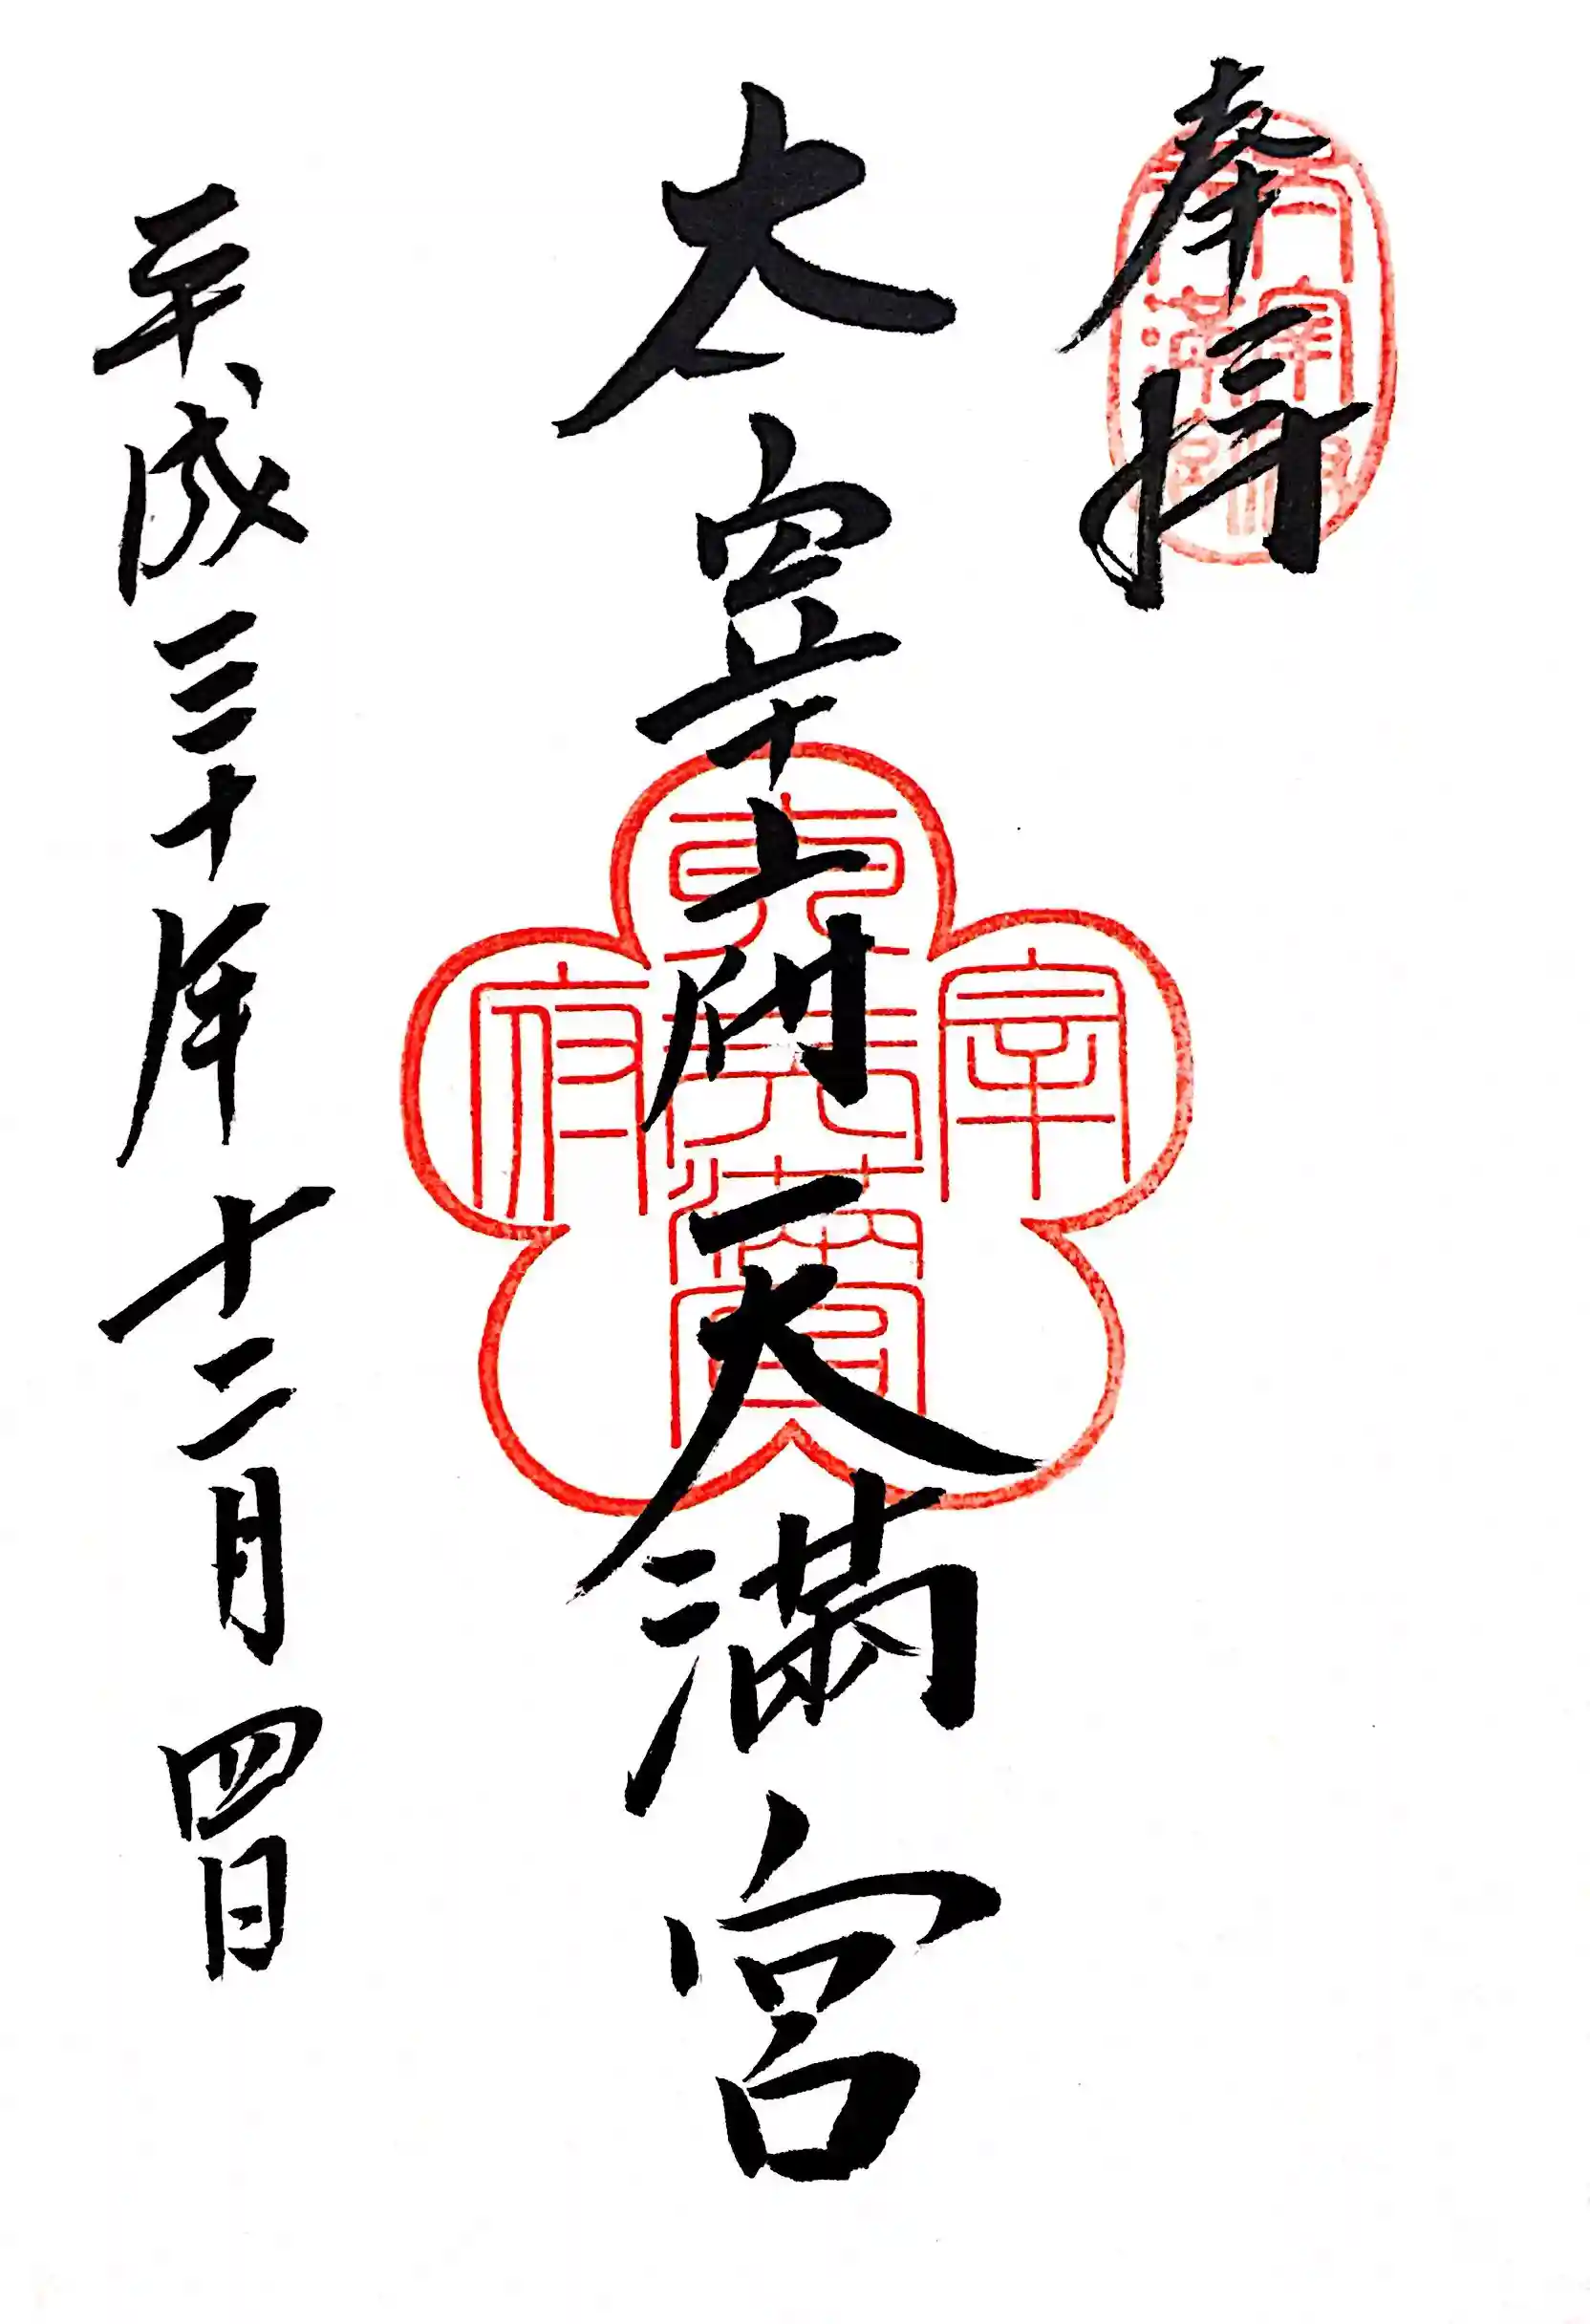 奉拝
太宰府天満宮
平成三十年十二月四日